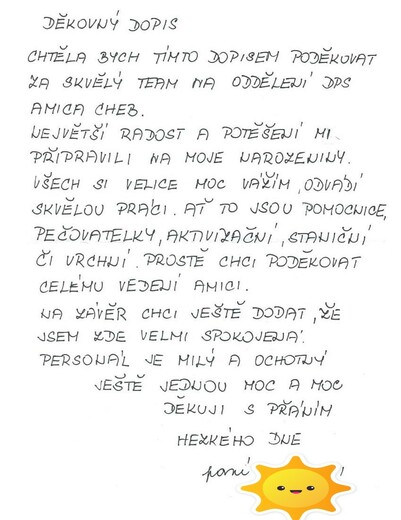 DĚKOVNÝ DOPIS
CHTĚLA BYCH TÍMTO DOPISEM PODĚKOVAT
ZA SKVĚLÝ TEAM NA ODDĚLENÍ DPS
AMICA CHEB.
NEJVĚTŠÍ RADOST A POTĚŠENÍ MI
PŘIPRAVILI NA MOJE NAROZENINY.
VŠECH SI VELICE MOC VÁŽÍM, ODVÁDÍ
SKVĚLOU PRÁCI. AŤ TO JSOU POMOCNICE,
PEČOVATELKY, AKTIVIZAČNÍ, STANIČNÍ
ČI VRCHNÍ. PROSTĚ CHCI PODĚKOVAT
CELÉMU VEDENÍ AMICI.
NA ZÁVĚR CHCI JEŠTĚ DODAT, ŽE
JSEM ZDE VELMI SPOKOJENÁ.
PERSONÁL JE MILÝ A OCHOTNÝ
JEŠTĚ JEDNOU MOC A MOC
DĚKUJI S PŘÁNÍM
HEZKÉHO DNE
paní